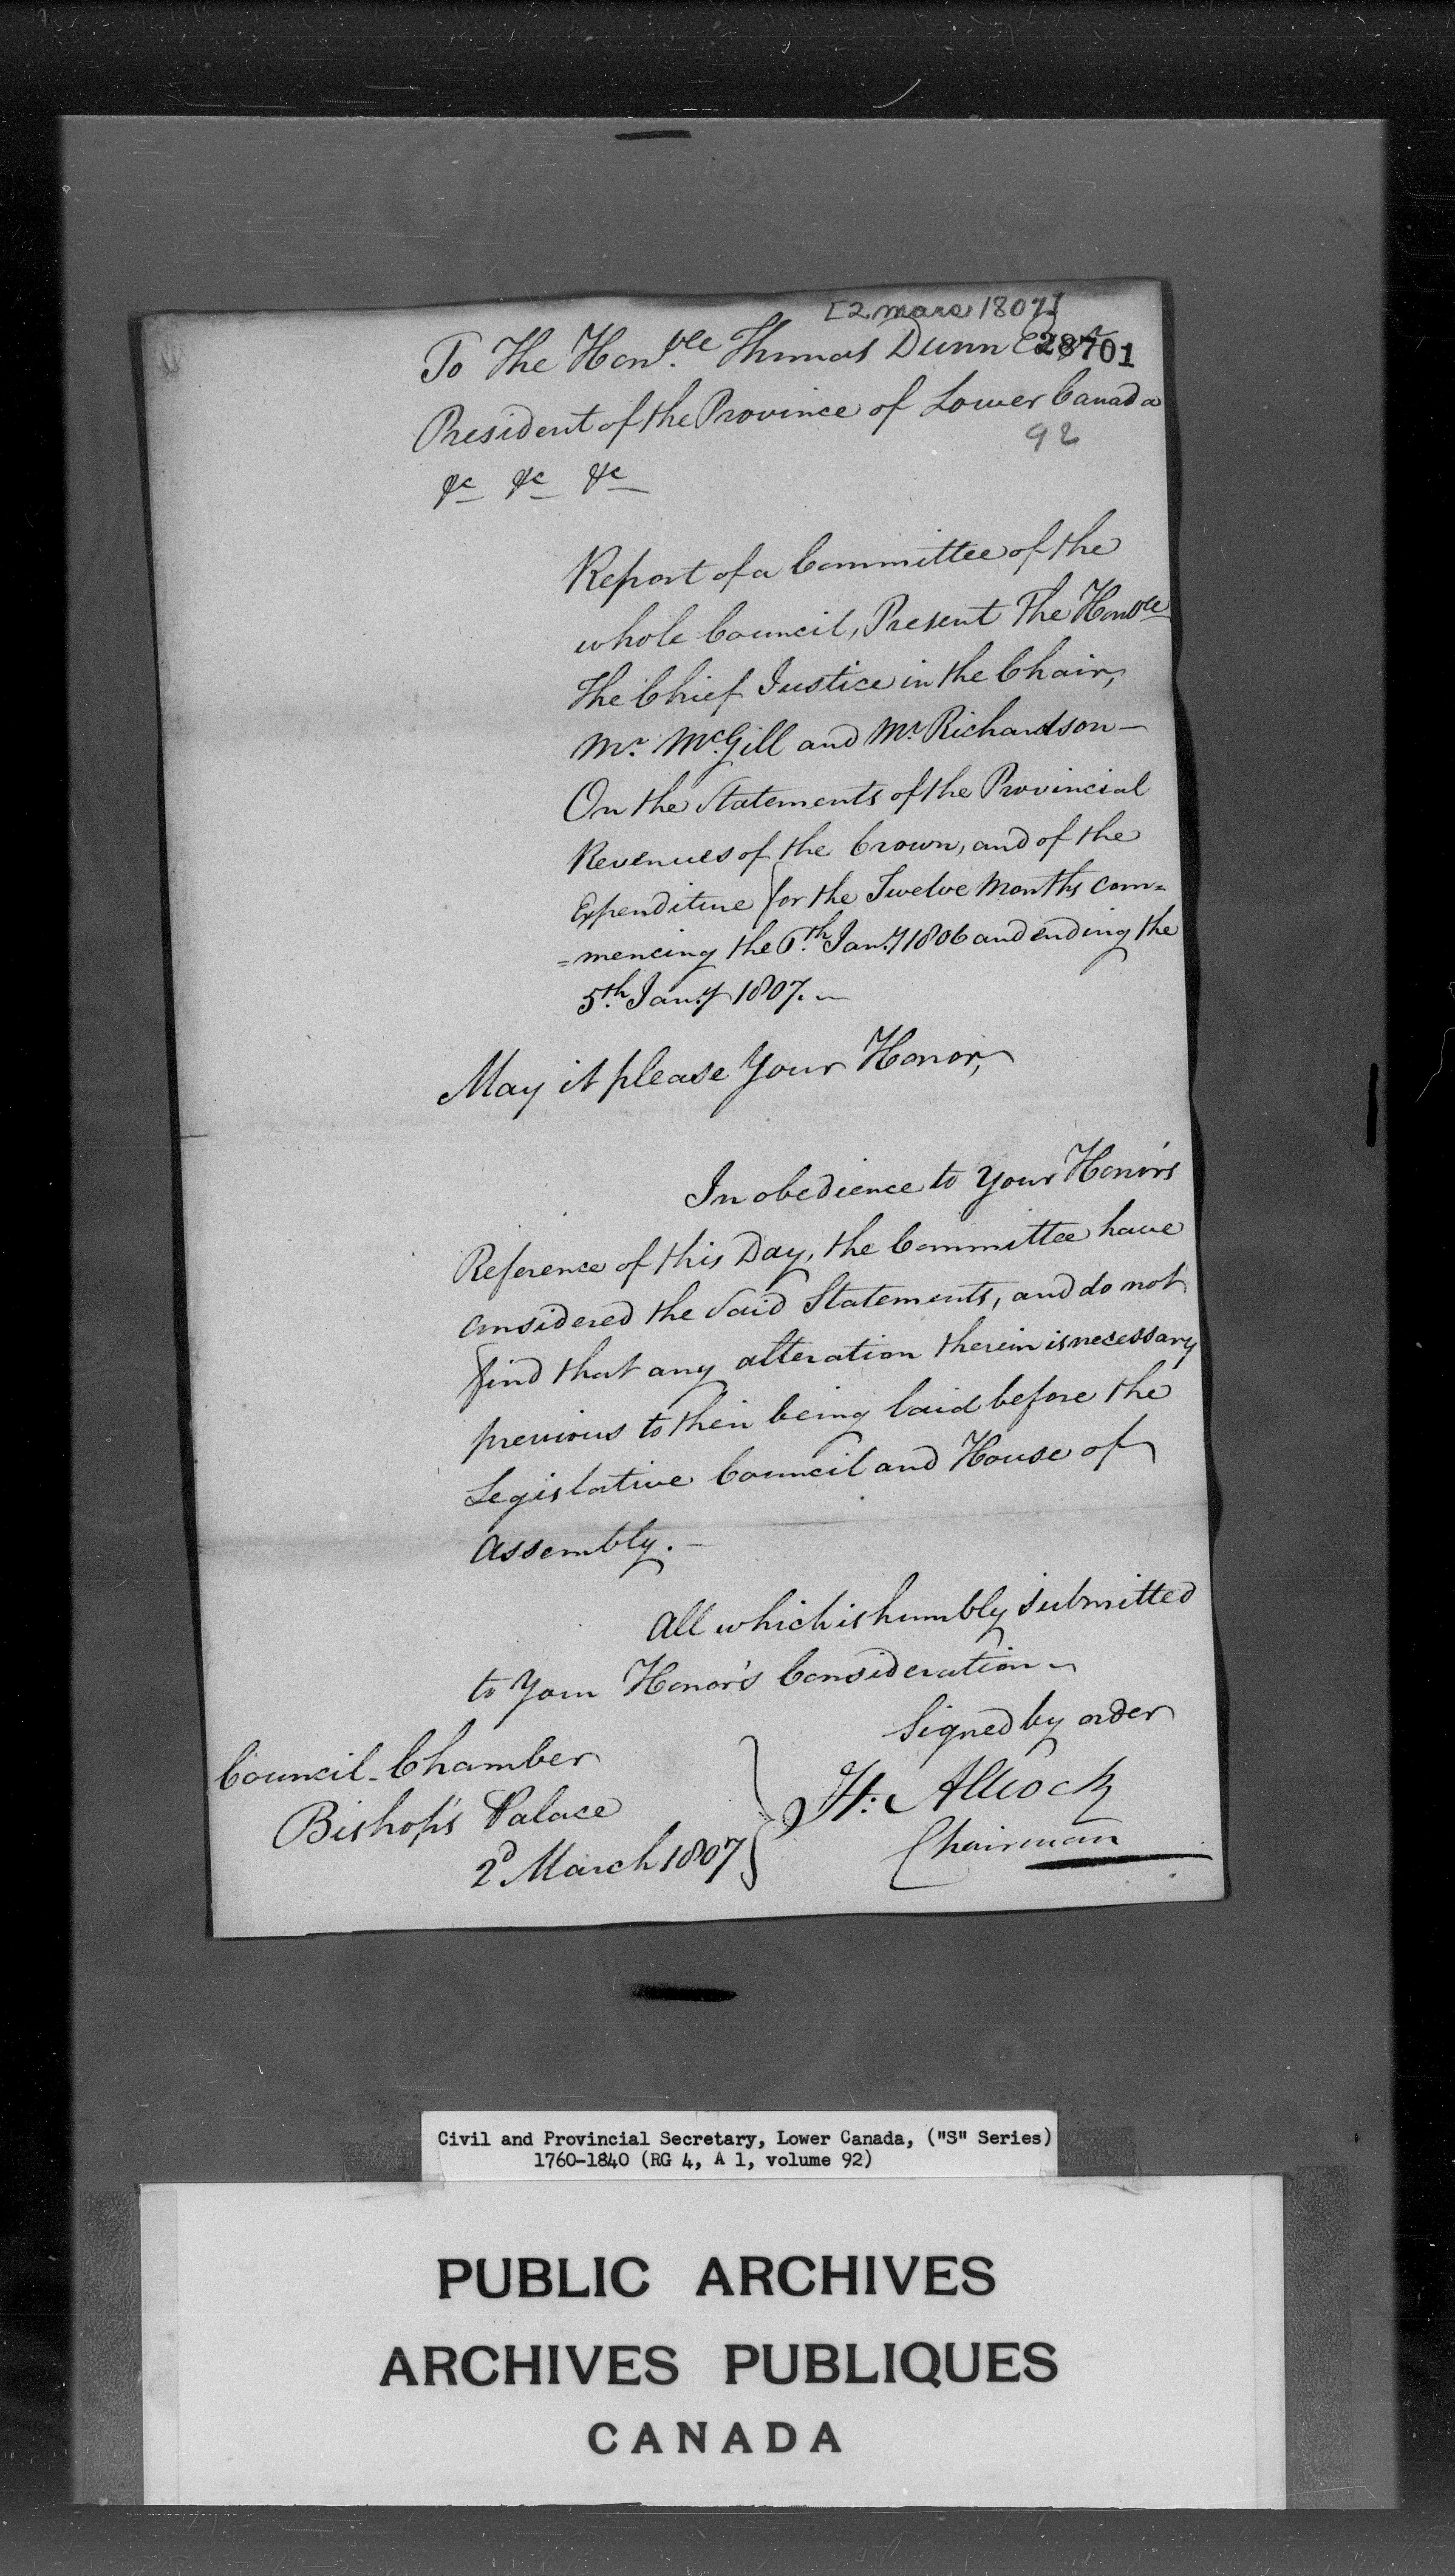 [2 mars 1807]
To The Honble. Thomas Dunn Esqr
28701
President of the Province of Lower Canada
92
&c &c &c
Report of a Committee of the
whole Council, Present The Honble
The Chief Justice in the Chair,
Mr. McGill and Mr. Richardson—
On the Statements of the Provincial
Revenues of the Crown, and of the
Expenditure for the Twelve Months com=
=mencing the 6th. Jany. 1806 and ending the
5th. Jany. 1807.—
May it please Your Honor,
In obedience to Your Honor's
Reference of this Day, the Committee have
considered the Said Statements, and do not
find that any alteration therein is necessary
previous to their being laid before the
Legislative Council and House of
Assembly.—
All which is humbly submitted
to Your Honor's Consideration
Signed by order
Council-Chamber
Bishop's Palace
2d March 1807
H: Allcock
Chairman
Civil and Provincial Secretary, Lower Canada, ("S" Series)
1760-1840 (RG 4, A 1, volume 92)
PUBLIC ARCHIVES
ARCHIVES PUBLIQUES
CANADA